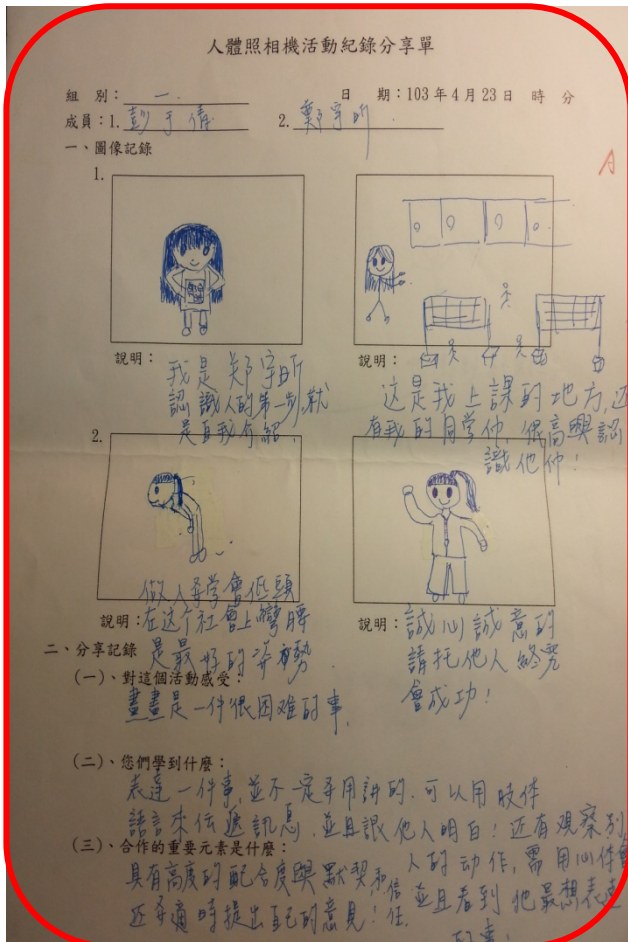 人體照相機活動紀錄分享單
組 別：一.
日 期：103年4月23日 時 分
成員：1.彭于倩 2.鄭宇昕
A
一、圖像記錄
1.
說明：
我是郑宇昕
認識人的第一步,就
是自我介紹
說明：
这是我上課的地方,还
有我的同学们,很高興認
識他们!
2.
做人要学會低頭
說明：在这个社會上彎腰
是最好的姿勢.
說明：誠心誠意的
請托他人終究
會成功!
二、分享記錄
(一)、對這個活動感受：
畫畫是一件很困难的事.
(二)、您們學到什麼：
表達一件事,並不一定要用講的.可以用肢体
語言來传遞訊息.並且讓他人明白!还有观察别
人的动作,需用心体會
並且看到他最想表達
的事!
(三)、合作的重要元素是什麼：
具有高度的配合度與默契和信任.
还要適時提出自己的意見!